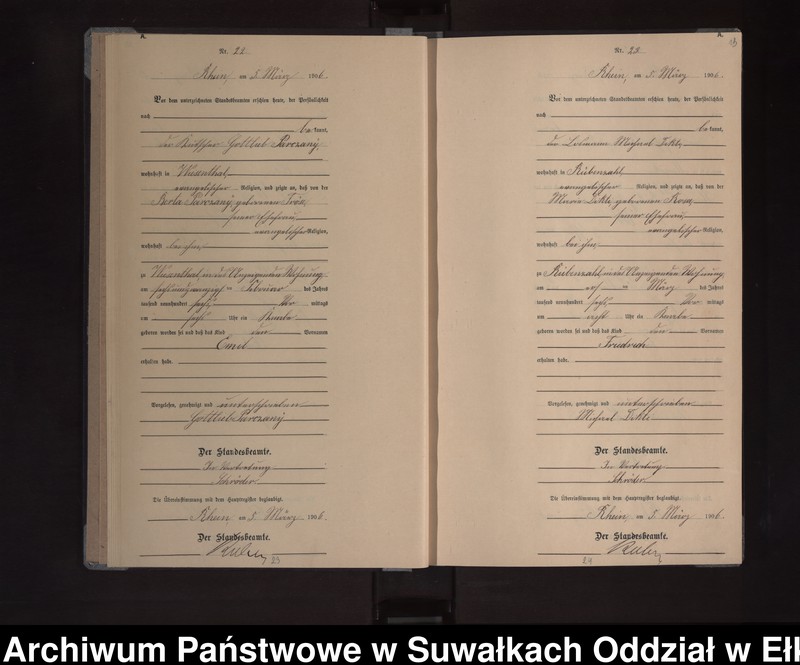 A.
Nr. 22
Rhein am 5. März 1906.
Vor dem unterzeichneten Standesbeamten erschien heute, der Persönlichkeit
nach
bekannt,
der Gottlieb
wohnhaft in
evangelischer Religion, und zeigte an, daß von der
geborenen
seiner Ehefrau
evangelischer Religion,
wohnhaft bei ihm,
zu in der Wohnung
am Februar des Jahres
tausend neunhundert sechs Vor mittags
um Uhr ein Knabe
geboren worden sei und daß das Kind den Vornamen
Emil
erhalten habe.
Vorgelesen, genehmigt und unterschrieben
Gottlieb
Der Standesbeamte.
In Vertretung
Schröder
Die Übereinstimmung mit dem Hauptregister beglaubigt.
Rhein am 5. März 1906.
Der Standesbeamte.
23
A.
Nr. 23
Rhein, am 5. März 1906.
Vor dem unterzeichneten Standesbeamten erschien heute, der Persönlichkeit
nach
bekannt,
der Michael
wohnhaft in Rübenzahl,
evangelischer Religion, und zeigte an, daß von der
Marie geborenen
seiner Ehefrau
evangelischer Religion,
wohnhaft bei ihm,
zu Rübenzahl in der Wohnung
am März des Jahres
tausend neunhundert sechs Vor mittags
um Uhr ein Knabe
geboren worden sei und daß das Kind den Vornamen
Friedrich
erhalten habe.
Vorgelesen, genehmigt und unterschrieben
Michael
Der Standesbeamte.
In Vertretung
Schröder
Die Übereinstimmung mit dem Hauptregister beglaubigt.
Rhein, am 5. März 1906.
Der Standesbeamte.
24
Archiwum Państwowe w Suwałkach Oddział w Ełk